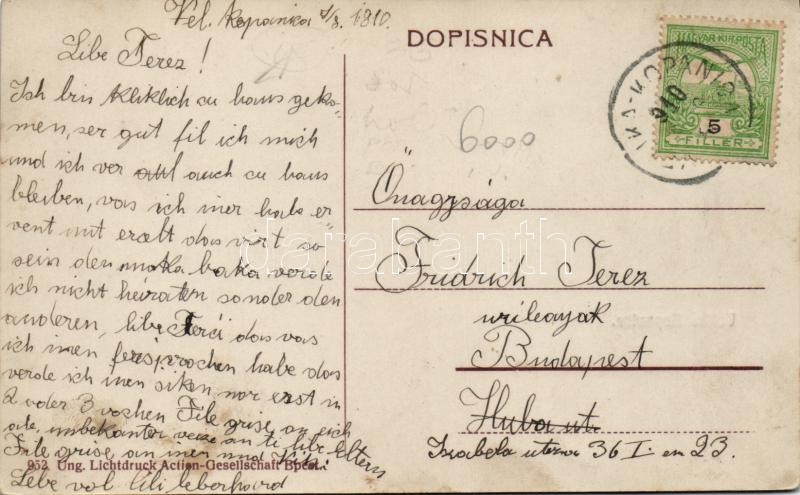 Vel. Kopanica 4/8. 1910.
Libe Terez!
Ich bin kliklich cu haus geko-
men, ser gut fil ich mich
und ich ver auch cu haus
bleiben, vas ich iner habe er-
vent mit erzelt das virt so
sein den baka verde
ich nicht heiraten sonder den
anderen, libe Terči das vas
ich inen fersprochen habe das
verde ich inen siken nor erst in
2 oder 3 vochen File grise an eich
ale, unbekanter veize an ti libe Eltern
File grise an inen und
Lebe vol Lili leberhard
952 Ung. Lichtdruck Action-Gesellschaft Bpest.
DOPISNICA
6000
MAGYAR KIR. POSTA
5
FILLER
IKA-KOPANICA
910
Önagysága
Fridrich Terez
Budapest
Huba ut.
Izabela utcza 36 I. em 23.
darabanth